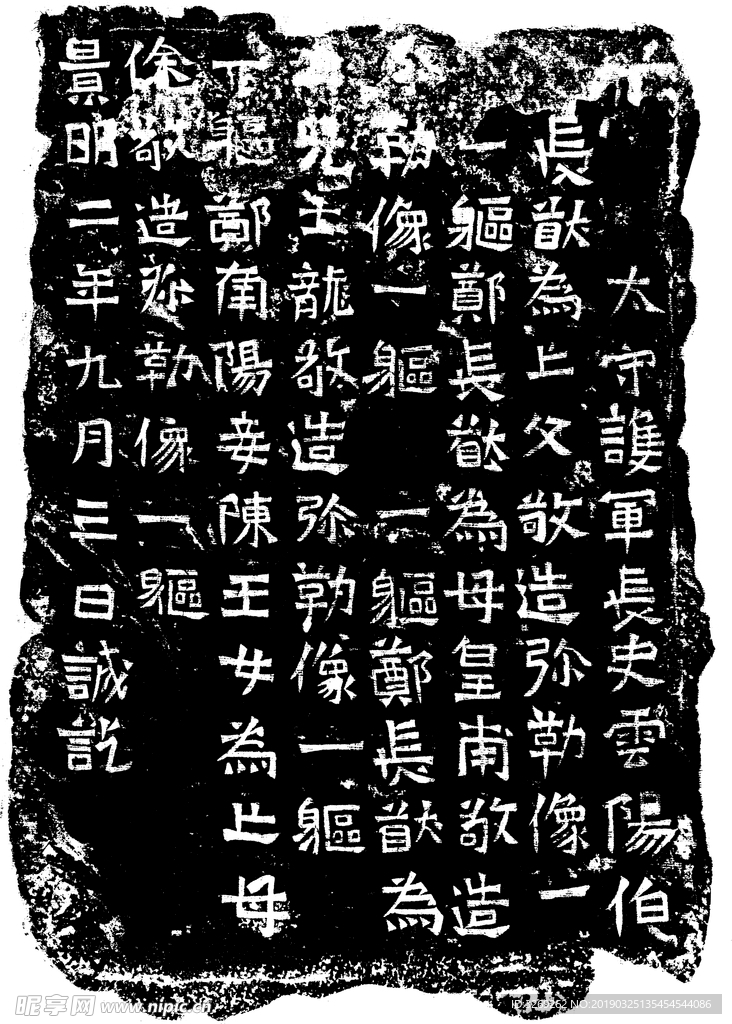 太守護軍長史雲陽伯
長猷為亡父敬造弥勒像一
一軀鄭長猷為母皇甫敬造
勒像一軀 一軀鄭長猷為
兒士龍敬造弥勒像一軀
軀鄭南陽妾陳王女為亡母
徐敬造弥勒像一軀
景明二年九月三日誡訖
昵享网 www.nipic.cn
ID:3260262 NO:20190325135454544086